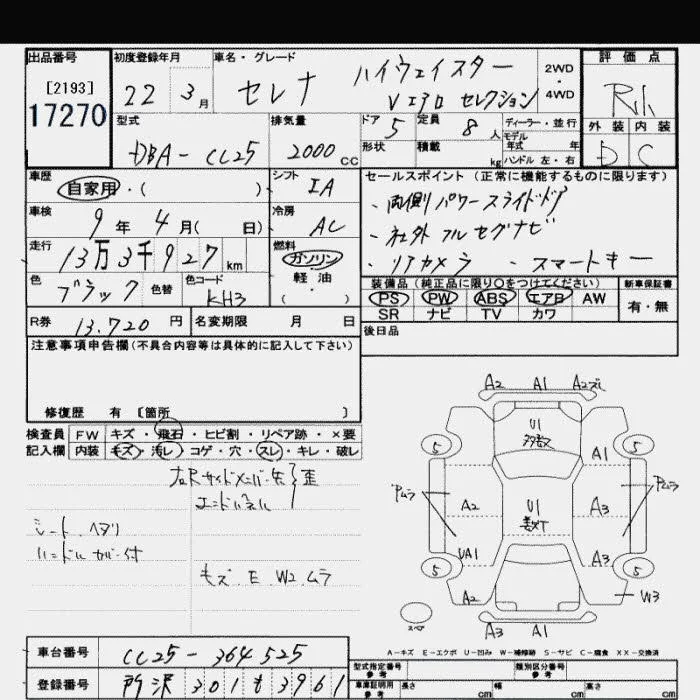 出品番号 初度登録年月 車名・グレード 評価点
[2193] 22 3月 セレナ ハイウェイスター 2WD・
17270 Vエアロ セレクション 4WD
型式 排気量 ドア 5 定員 8人 ディーラー・並行 外装 内装
DBA-CC25 2000cc 形状 積載 kg モデル年式 年 D C
ハンドル 左・右
車歴 自家用・( ) シフト IA セールスポイント(正常に機能するものに限ります)
車検 9年 4月( 日) 冷房 AC ・両側パワースライドドア
走行 13万3千927km 燃料 ガソリン ・社外フルセグナビ
軽油 ・リアカメラ ・スマートキー
色 ブラック 色替 色コード KH3 ( )
装備品(純正品に限り〇をつけてください) 新車保証書
PS PW ABS エアB AW 有・無
SR ナビ TV カワ
R券 13.720円 名変期限 月 日 後日品
注意事項申告欄(不具合内容等は具体的に記入して下さい)
修復歴 有 [箇所 ]
検査員 FW キズ・飛石・ヒビ割・リペア跡・×要
記入欄 内装 キズ・汚レ・コゲ・穴・スレ・キレ・破レ
左Rサイドメンバー先 歪
エンドパネル
シート ヘタリ
ハンドル カバー付
キズ.E.W2.ムラ
A2 A1 A2ズレ
U1
多数
5 5
A1
Pムラ Pムラ
A2 U1 A3
多数T
UA1 A3
5 5
A2 W3
スペア A3 A1
A-キズ E-エクボ U-凹み W-補修跡 S-サビ C-腐食 XX-交換済
車台番号 CC25-364525
登録番号 所沢 301 も 3961
型式指定番号 参考 類別区分番号 参考
車庫証明用 参考 長さ cm 幅 cm 高さ cm